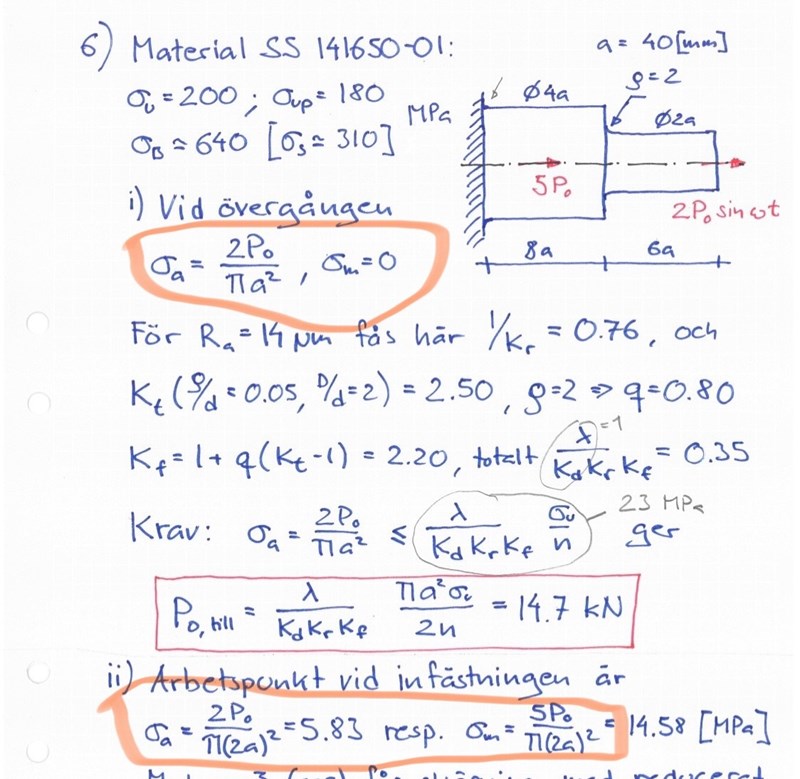 6) Material SS 141650-01:
a = 40 [mm]
σu = 200 ; σup = 180
MPa
σB ≃ 640 [σs ≃ 310]
ø4a
ρ=2
ø2a
5P₀
2P₀ sin ωt
8a
6a
i) Vid övergången
σa = 2P₀/πa² , σm = 0
För Ra = 14 µm fås här 1/Kr = 0.76, och
Kt (ρ/d = 0.05, D/d = 2) = 2.50 , ρ=2 ⇒ q=0.80
Kf = 1 + q(Kt - 1) = 2.20, totalt λ/(Kd Kr Kf) = 0.35
λ=1
Krav: σa = 2P₀/πa² ≤ λ/(Kd Kr Kf) σu/n ger
23 MPa
P₀,till = λ/(Kd Kr Kf) πa²σu/2n = 14.7 kN
ii) Arbetspunkt vid infästningen är
σa = 2P₀/π(2a)² = 5.83 resp. σm = 5P₀/π(2a)² = 14.58 [MPa]